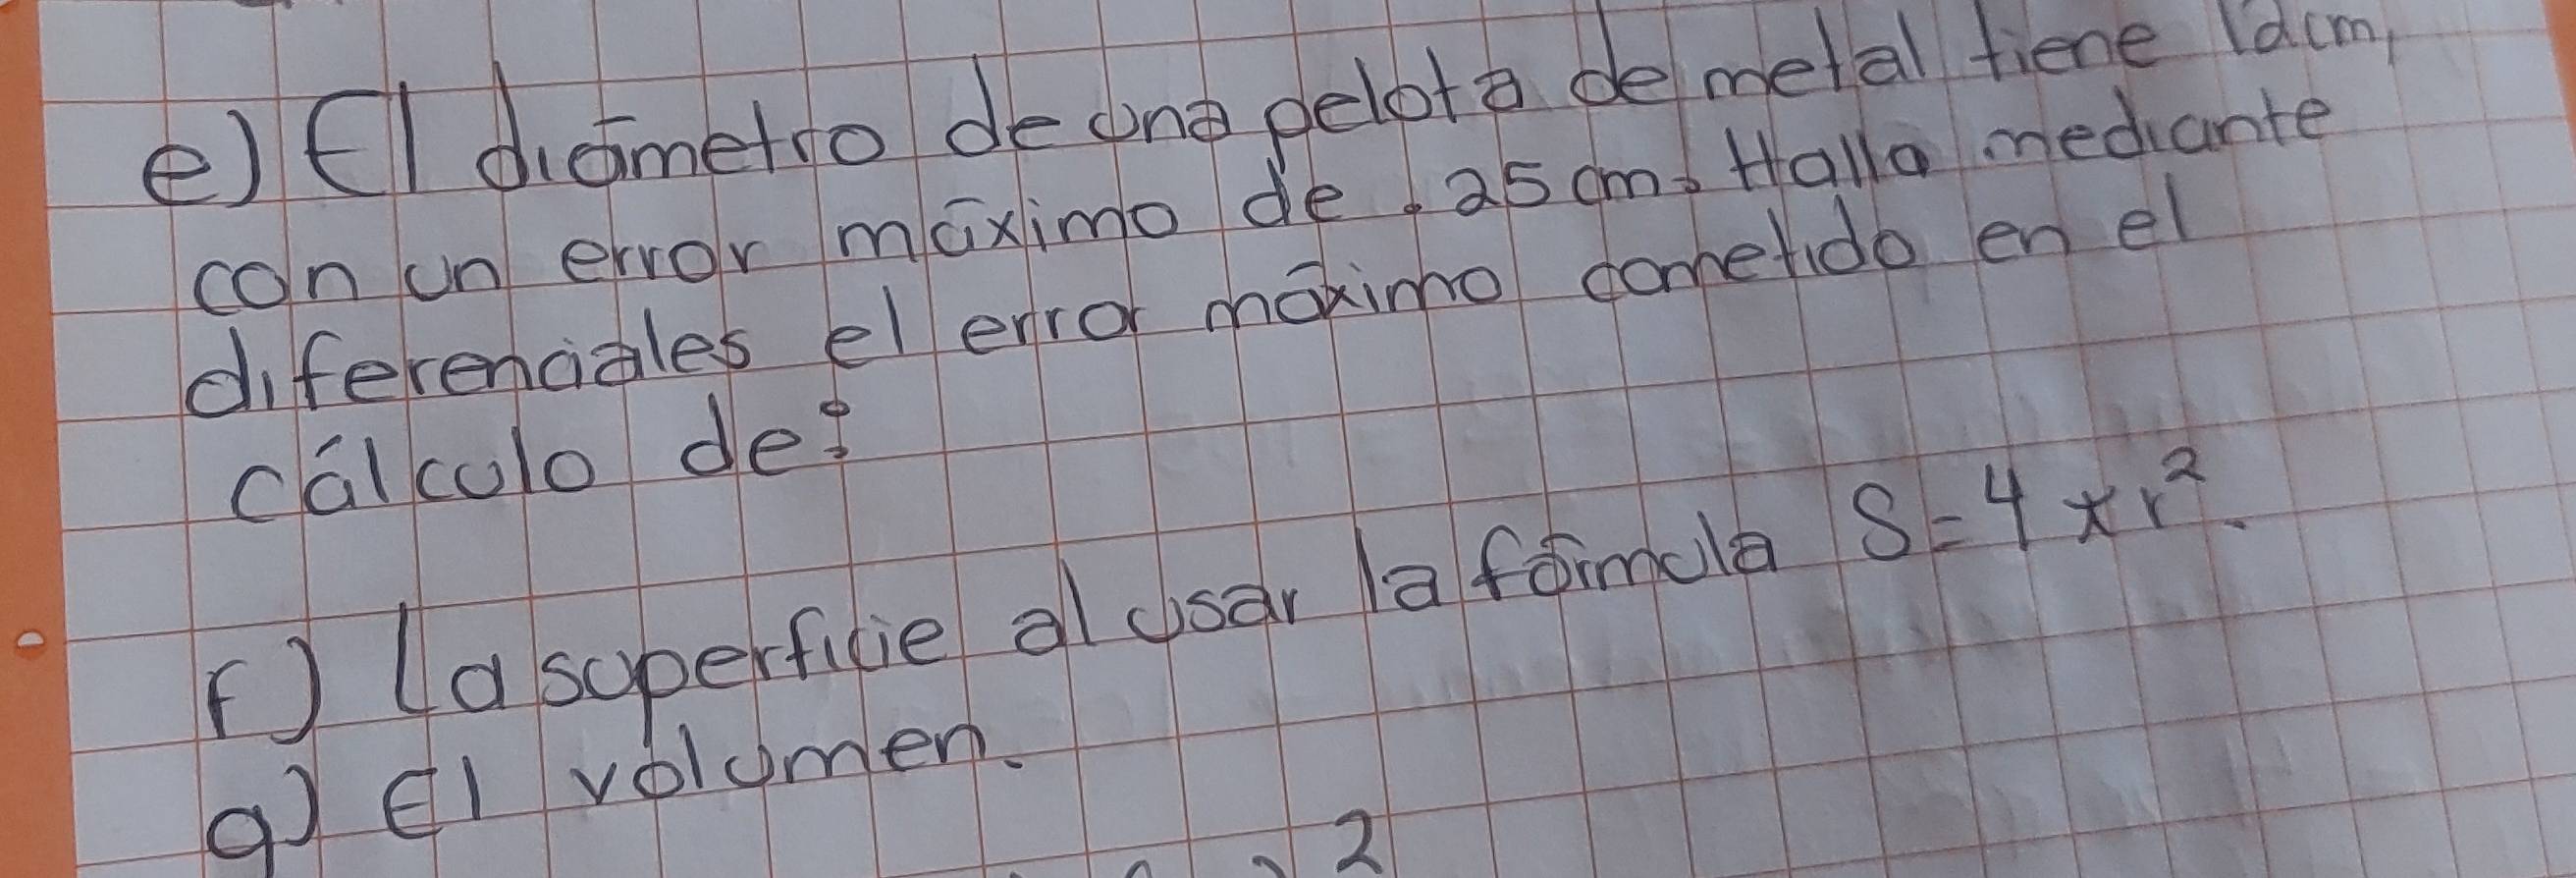 e) El diámetro de una pelota de metal tiene 12cm,
con un error máximo de .25 cm. Halla mediante
diferenciales el error máximo cometido en el
cálculo de:
f) La superficie al usar la fórmula S=4πr².
g) El volumen.
2